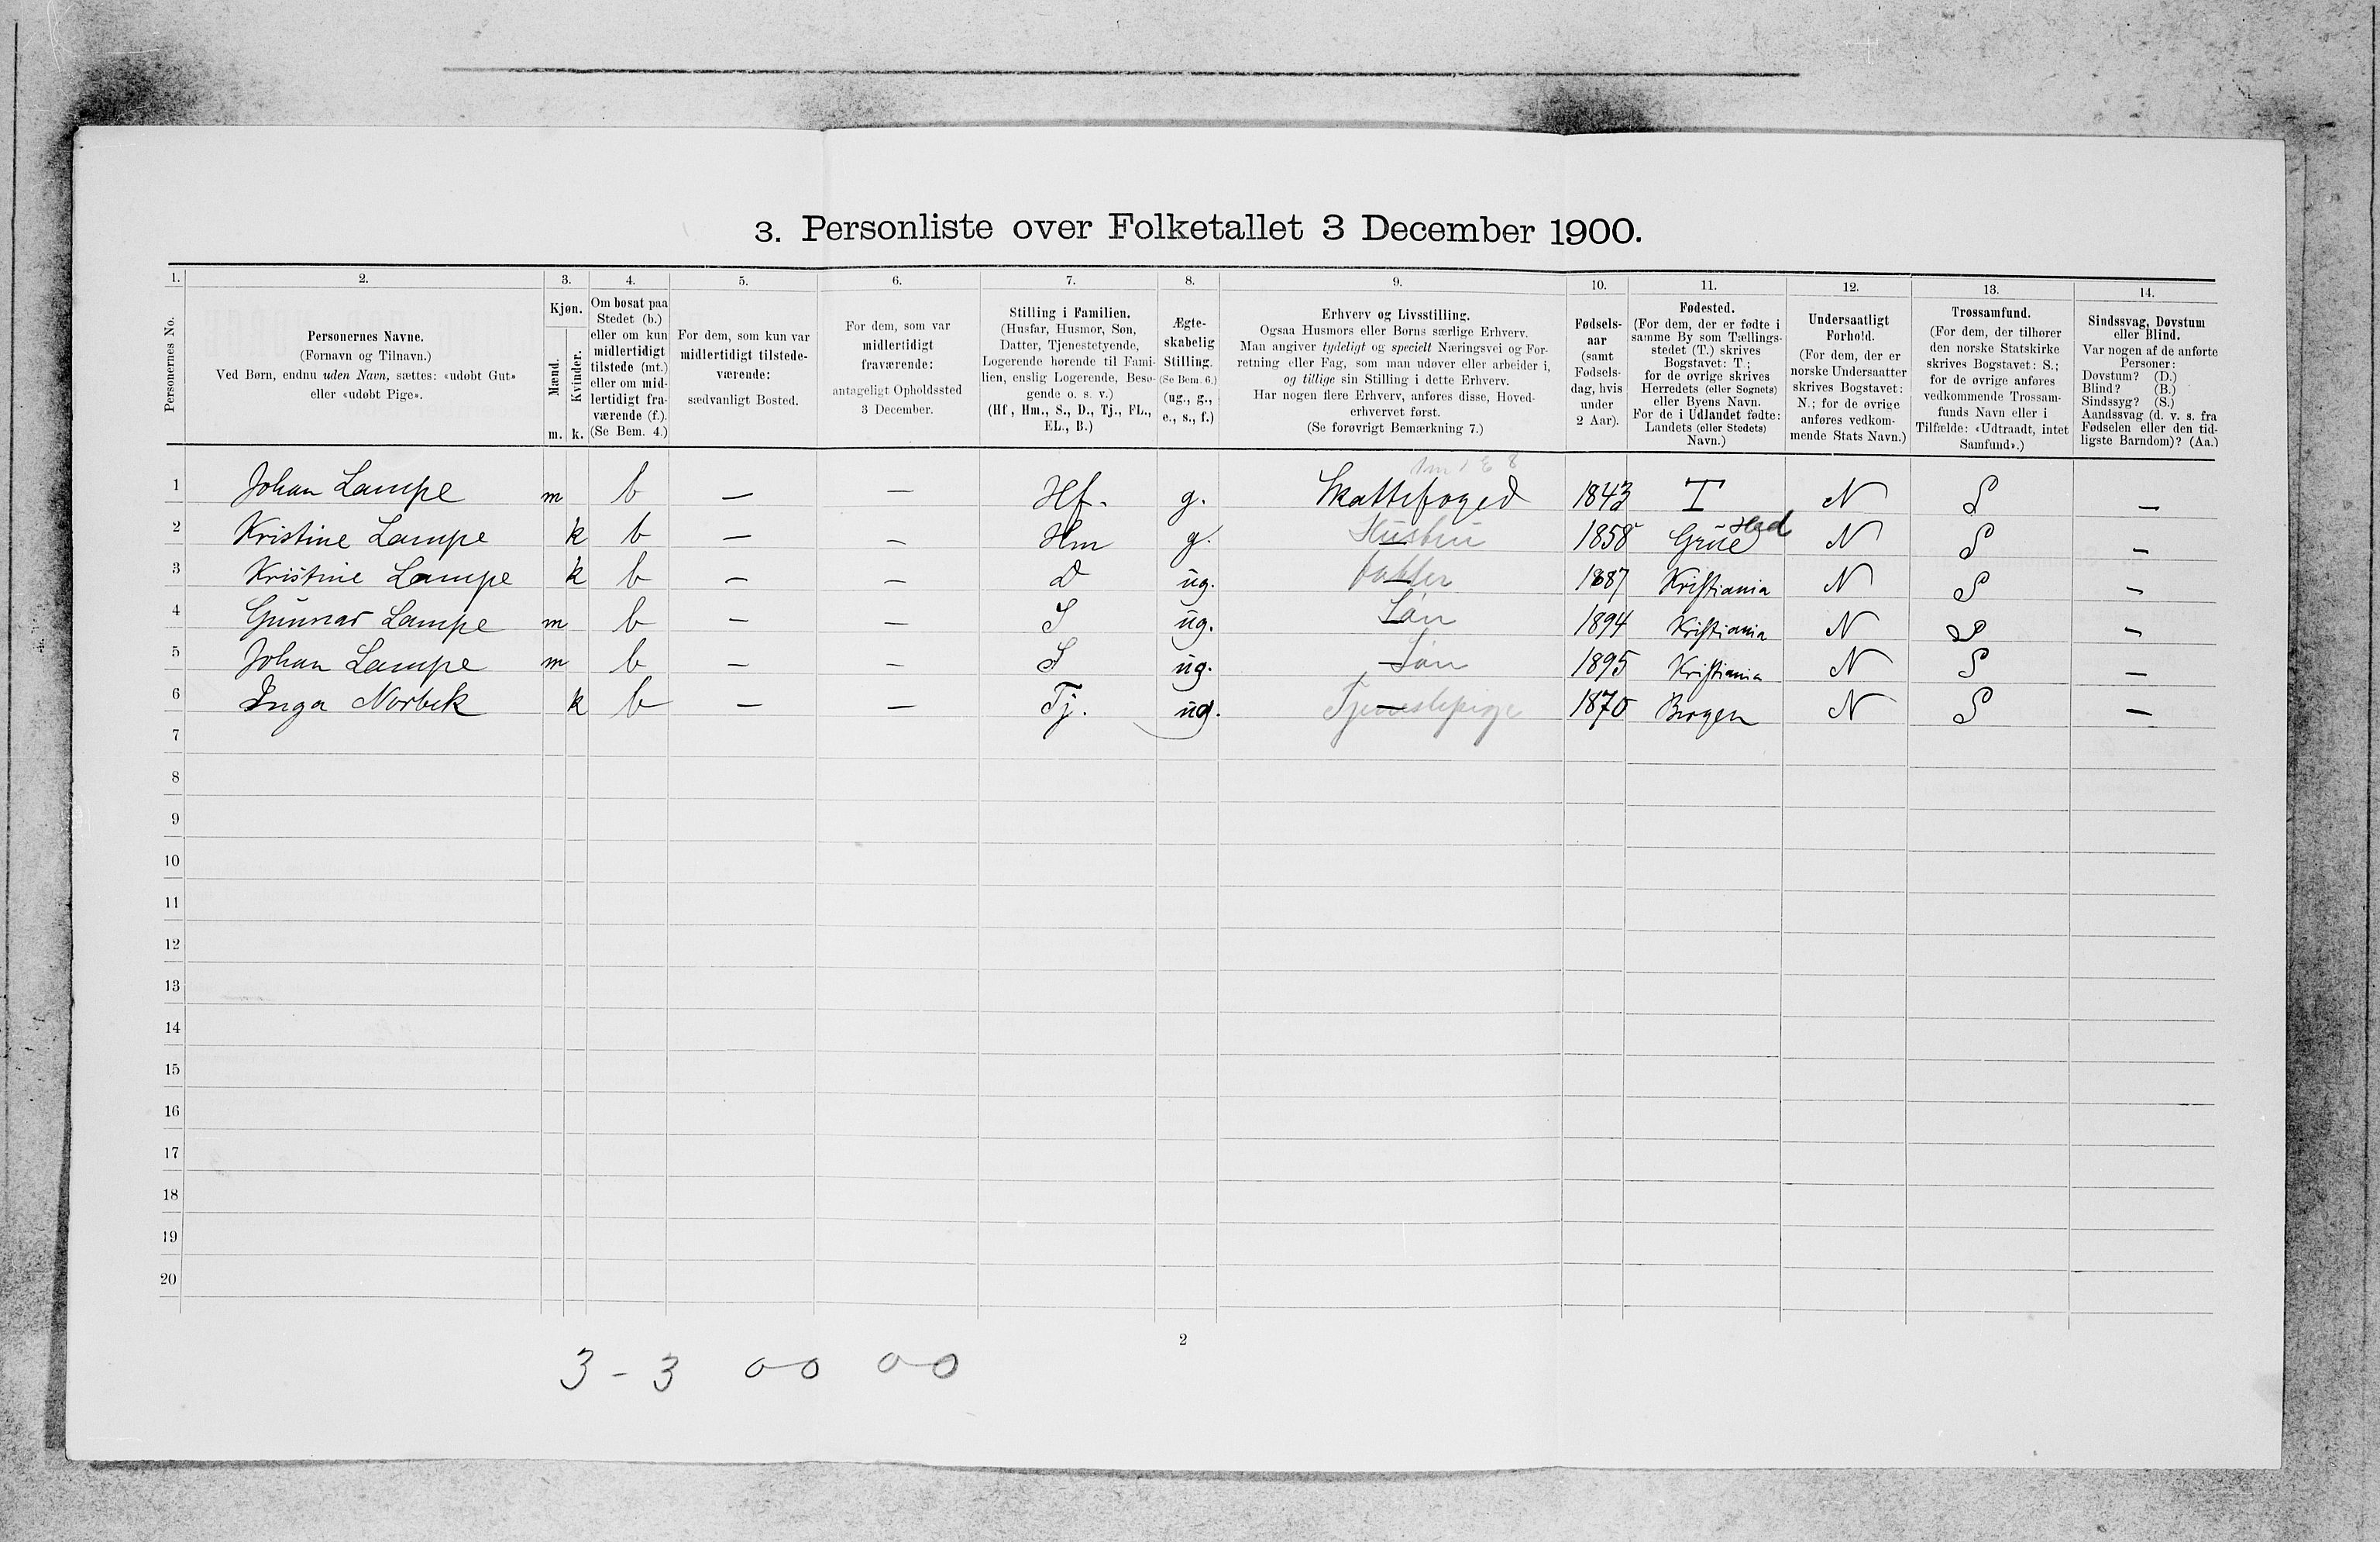 3. Personliste over Folketallet 3 December 1900.
1. 2. 3. 4. 5. 6. 7. 8. 9. 10. 11. 12. 13. 14.
Personernes No.
Personernes Navne.
(Fornavn og Tilnavn.)
Ved Børn, endnu uden Navn, sættes: «udøbt Gut»
eller «udøbt Pige».
Kjøn.
Mænd.
Kvinder.
m. k.
Om bosat paa
Stedet (b.)
eller om kun
midlertidigt
tilstede (mt.)
eller om mid-
lertidigt fra-
værende (f.).
(Se Bem. 4.)
For dem, som kun var
midlertidigt tilstede-
værende:
sædvanligt Bosted.
For dem, som var
midlertidigt
fraværende:
antageligt Opholdssted
3 December.
Stilling i Familien.
(Husfar, Husmor, Søn,
Datter, Tjenestetyende,
Logerende hørende til Fami-
lien, enslig Logerende, Besø-
gende o. s. v.)
(Hf., Hm., S., D., Tj., FL.,
EL., B.)
Ægte-
skabelig
Stilling.
(Se Bem. 6.)
(ug., g.,
e., s., f.)
Erhverv og Livsstilling.
Ogsaa Husmors eller Børns særlige Erhverv.
Man angiver tydeligt og specielt Næringsvei og For-
retning eller Fag, som man udøver eller arbeider i,
og tillige sin Stilling i dette Erhverv.
Har nogen flere Erhverv, anføres disse, Hoved-
erhvervet først.
(Se forøvrigt Bemærkning 7.)
Fødsels-
aar
(samt
Fødsels-
dag, hvis
under
2 Aar).
Fødested.
(For dem, der er fødte i
samme By som Tællings-
stedet (T.) skrives
Bogstavet: T;
for de øvrige skrives
Herredets (eller Sognets)
eller Byens Navn.
For de i Udlandet fødte:
Landets (eller Stedets)
Navn.)
Undersaatligt
Forhold.
(For dem, der er
norske Undersaatter
skrives Bogstavet:
N.; for de øvrige
anføres vedkom-
mende Stats Navn.)
Trossamfund.
(For dem, der tilhører
den norske Statskirke
skrives Bogstavet: S.;
for de øvrige anføres
vedkommende Trossam-
funds Navn eller i
Tilfælde: «Udtraadt, intet
Samfund».)
Sindssvag, Døvstum
eller Blind.
Var nogen af de anførte
Personer:
Døvstum? (D.)
Blind? (B.)
Sindssyg? (S.)
Aandssvag (d. v. s. fra
Fødselen eller den tid-
ligste Barndom)? (Aa.)
1 Johan Lampe m b — — Hf. g. Skattefoged 1843 T N S —
2 Kristine Lampe k b — — Hm g. Hustru — 1858 Grue Hed N S —
3 Kristine Lampe k b — — D ug. Datter — 1887 Kristiania N S —
4 Gunnar Lampe m b — — S ug. Søn — 1894 Kristiania N S —
5 Johan Lampe m b — — S ug. — Søn 1895 Kristiania N S —
6 Inga Norbek k b — — Tj. ug. Tjenestepige — 1870 Bergen N S —
7
8
9
10
11
12
13
14
15
16
17
18
19
20
2
3 - 3 0-0 0-0